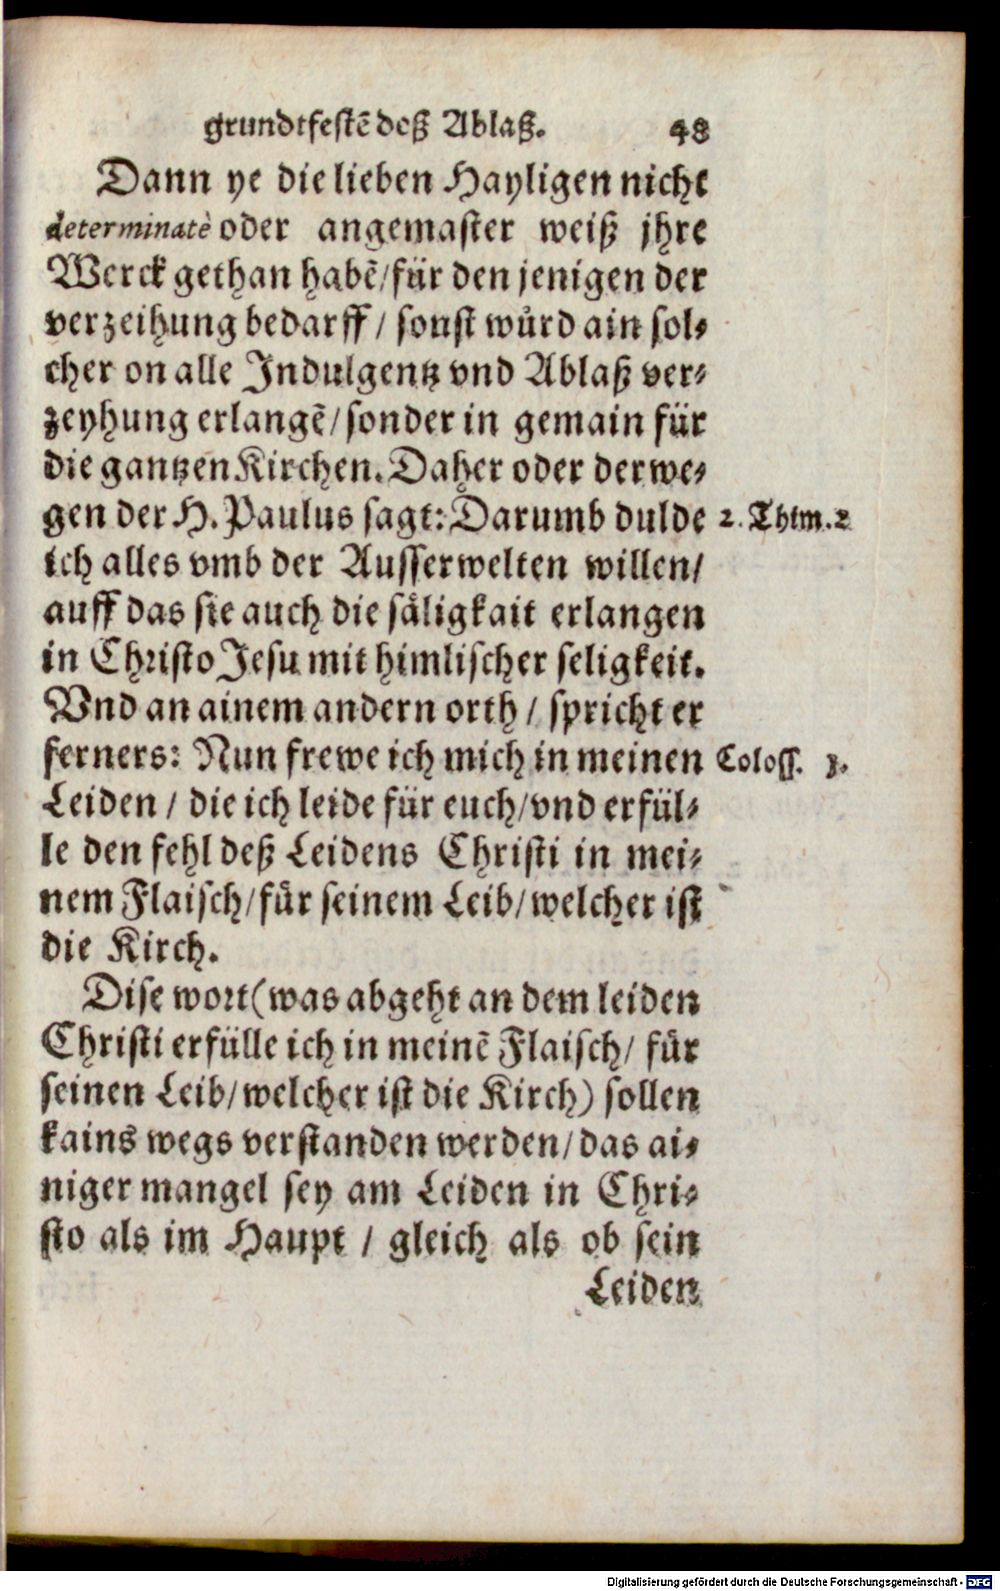 grundtfestē deß Ablaß. 48
Dann ye die lieben Hayligen nicht
determinatè oder angemaster weiß jhre
Werck gethan habē/für den jenigen der
verzeihung bedarff / sonst wůrd ain sol⸗
cher on alle Indulgentz vnd Ablaß ver⸗
zeyhung erlangē/sonder in gemain für
die gantzen Kirchen. Daher oder derwe⸗
gen der H. Paulus sagt: Darumb dulde 2. Thim. 2
ich alles vmb der Ausserwelten willen/
auff das sie auch die säligkait erlangen
in Christo Jesu mit himlischer seligkeit.
Vnd an ainem andern orth / spricht er
ferners: Nun frewe ich mich in meinen Coloss. 1.
Leiden / die ich leide für euch/vnd erfül⸗
le den fehl deß Leidens Christi in mei⸗
nem Flaisch/für seinem Leib/welcher ist
die Kirch.
Dise wort(was abgeht an dem leiden
Christi erfülle ich in meinē Flaisch/ für
seinen Leib/welcher ist die Kirch) sollen
kains wegs verstanden werden/das ai⸗
niger mangel sey am Leiden in Chri⸗
sto als im Haupt / gleich als ob sein
Leiden
Digitalisierung gefördert durch die Deutsche Forschungsgemeinschaft - DFG